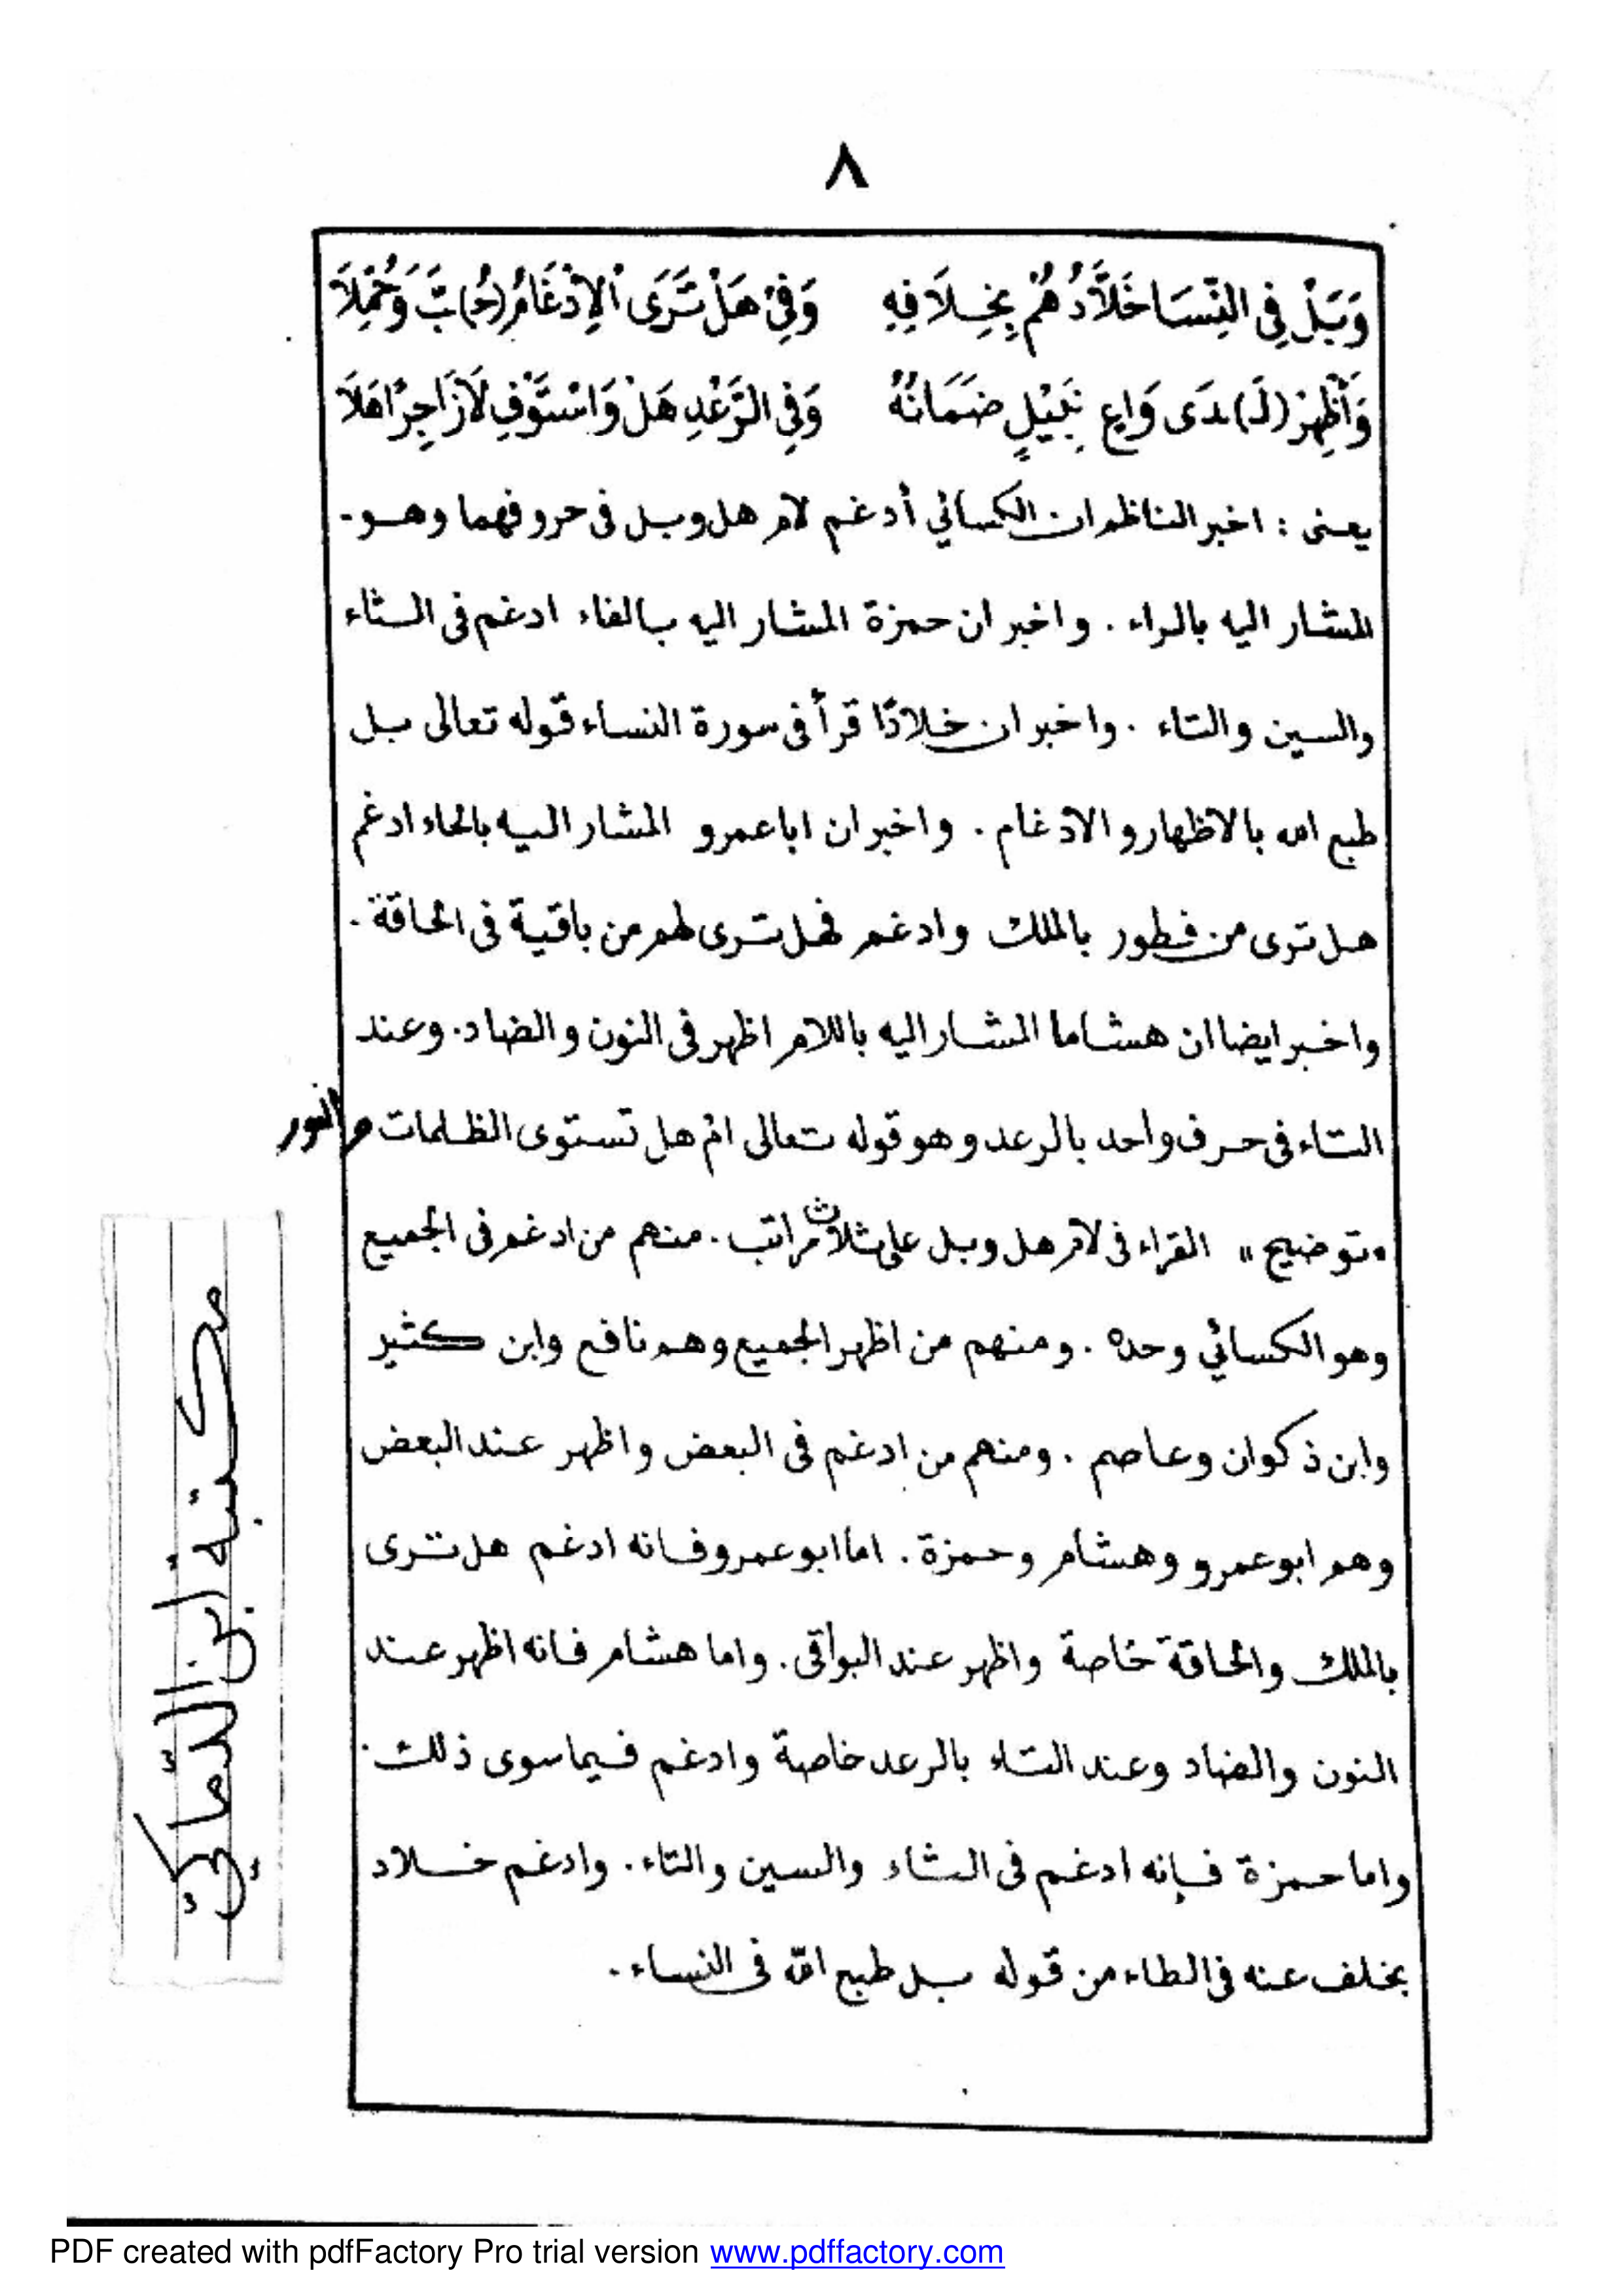 ٨
وَبَلْ فِى النِّسَا خَلَّادُهُمْ بِخِلَافِهِ وَفِىْ هَلْ تَرَى الْإِدْغَامُ (حُ)بَّ وَحُمِّلَا
وَأَظْهِرْ (لَ)دَى وَاعٍ نَبِيْلٍ ضَمَانُهُ وَفِى الرَّعْدِ هَلْ وَاسْتَوْفِ لَا زَاجِرًا هَلَا
يعنى : اخبر الناظم ان الكسائي أدغم لام هل وبل فى حروفهما وهو-
المشار اليه بالراء . واخبر ان حمزة المشار اليه بالفاء ادغم فى الثاء
والسين والتاء . واخبر ان خلادًا قرأ فى سورة النساء قوله تعالى بل
طبع الله بالاظهار والادغام . واخبر ان ابا عمرو المشار اليه بالحاء ادغم
هل ترى من فطور بالملك وادغم فهل ترى لهم من باقية فى الحاقة .
واخبر ايضا ان هشاما المشار اليه باللام اظهر فى النون والضاد . وعند
التاء فى حرف واحد بالرعد وهو قوله تعالى ام هل تستوى الظلمات والنور
"توضيح" القراء فى لام هل وبل على ثلاث مراتب . منهم من ادغم فى الجميع
وهو الكسائي وحده . ومنهم من اظهر الجميع وهم نافع وابن كثير
وابن ذكوان وعاصم . ومنهم من ادغم فى البعض واظهر عند البعض
وهم ابو عمرو وهشام وحمزة . اما ابو عمرو فانه ادغم هل ترى
بالملك والحاقة خاصة واظهر عند البواقى . واما هشام فانه اظهر عند
النون والضاد وعند التاء بالرعد خاصة وادغم فيما سوى ذلك .
واما حمزة فإنه ادغم فى الثاء والسين والتاء . وادغم خلاد
بخلف عنه فى الطاء من قوله بل طبع الله فى النساء .
مكتبة ابن
PDF created with pdfFactory Pro trial version www.pdffactory.com